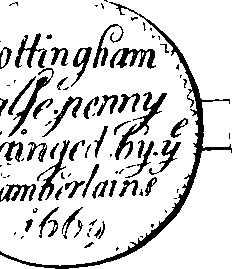 ottingham
alfe penny
ainged by yᵉ
amberlains
1669